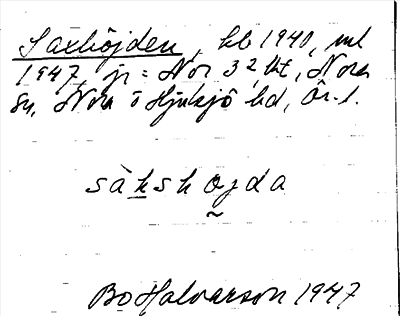 Saxhöjden, kb 1940, ml
1947, jr = Nor 3², kt, Nora
sn, Nora o Hjulsjö bd, Ör. l.
säkskojda
Bo Halvarson 1947